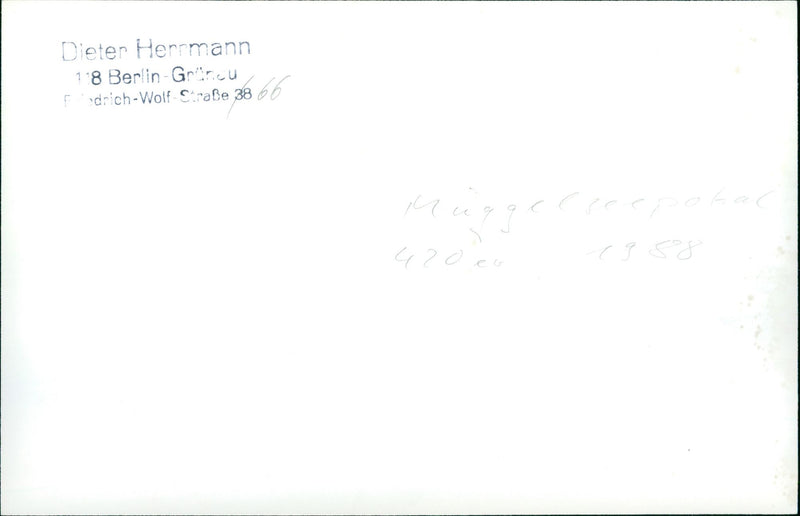 Dieter Herrmann
118 Berlin-Grünau
Friedrich-Wolf-Straße 38/66
Müggelseepokal
420er 1988